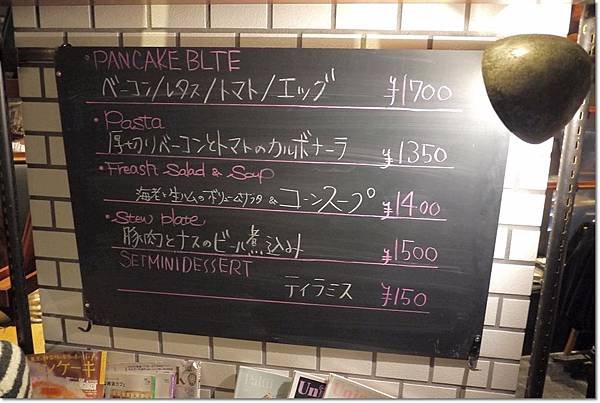 ・PANCAKE BLTE
ベーコン/レタス/トマト/エッグ ¥1700
・Pasta
厚切りベーコンとトマトのカルボナーラ ¥1350
・Freash Salad & Soup
海老と生ハムのボリュームサラダ & コーンスープ ¥1400
・Stew plate
豚肉とナスのビール煮込み ¥1500
SET MINI DESSERT
ティラミス ¥150
ンケーキ
Uni
Un